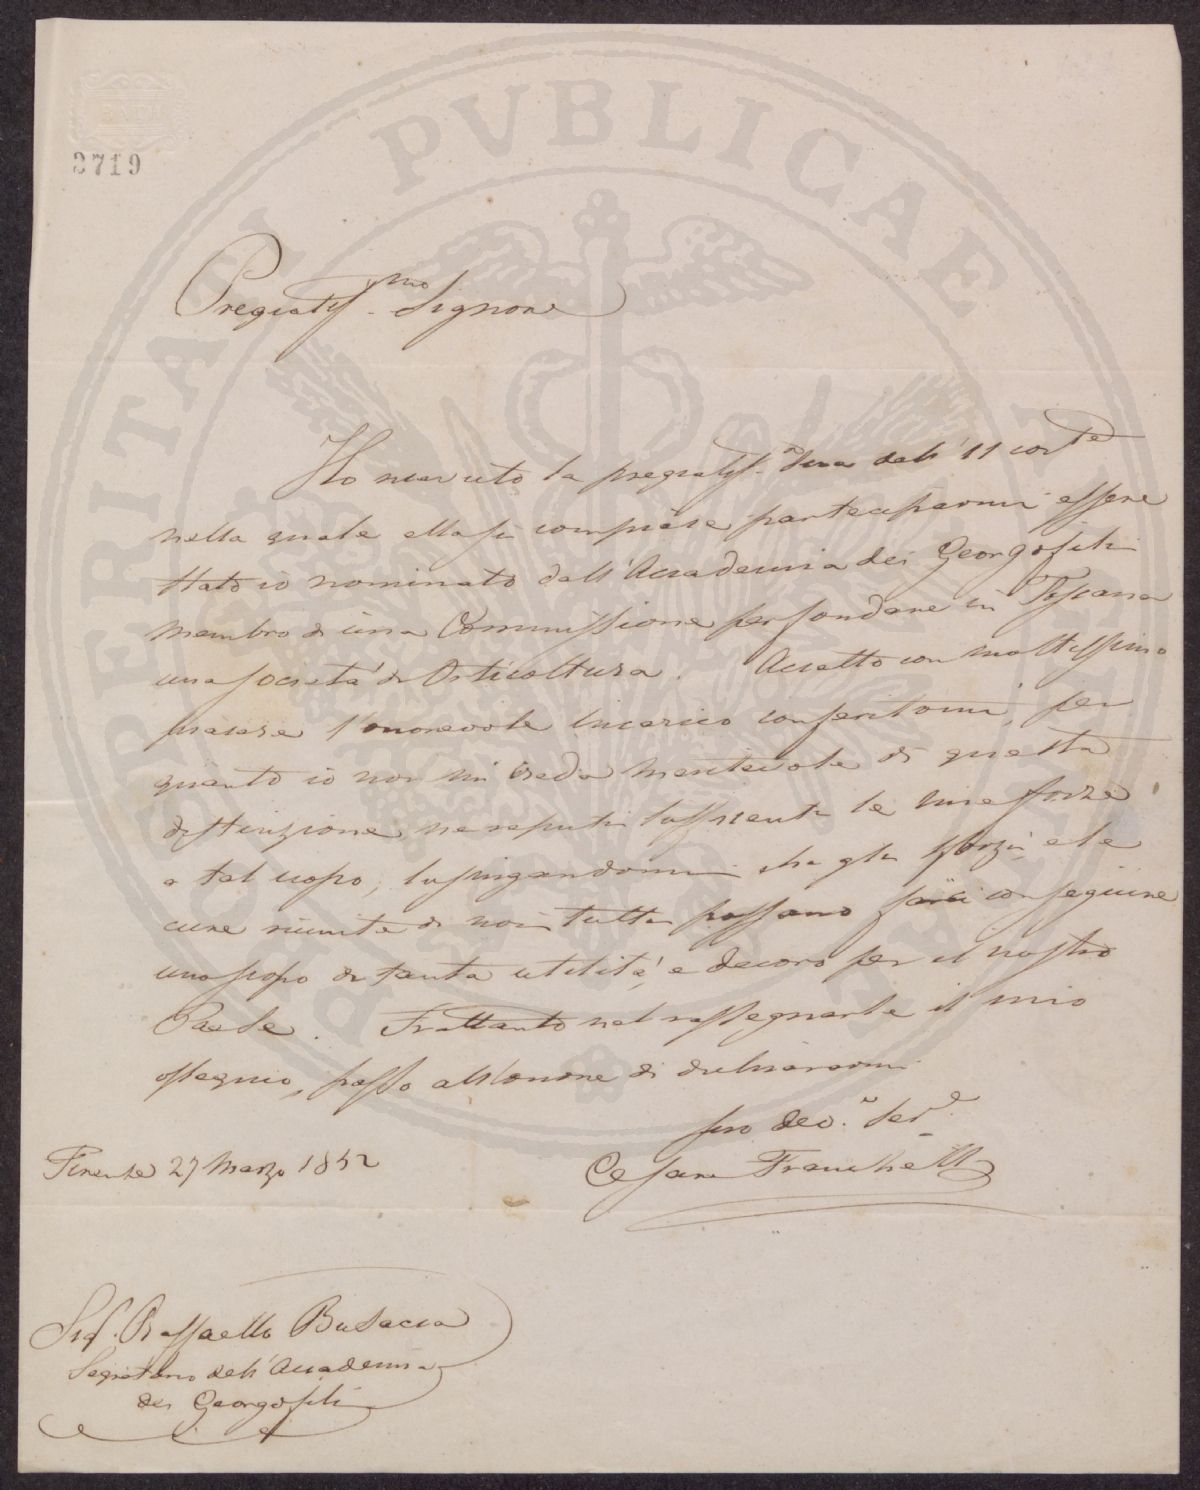 PROSPERITATI PVBLICAE AVGENDAE
3719
Pregiatiss.mo Signore
Ho ricevuto la pregiatiss.a sua dell'11 corte
nella quale ella si compiace parteciparmi essere
stato io nominato dall'Accademia dei Georgofili
membro di una Commissione per fondare in Toscana
una società di Orticoltura. Accetto con moltissimo
piacere l'onorevole incarico conferitomi, per
quanto io non mi creda meritevole di questa
distinzione, ne reputi sufficienti le mie forze
a tal uopo; lusingandomi che gli sforzi, e le
cure riunite di noi tutti possano farci conseguire
uno scopo di tanta utilità, e decoro per il nostro
Paese. Frattanto nel rassegnarle il mio
ossequio, passo all'onore di dichiararmi
suo dev.o ser.e
Cesare Franchetti
Firenze 27 Marzo 1852
Sigr. Raffaello Busacca
Segretario dell'Accademia
dei Georgofili